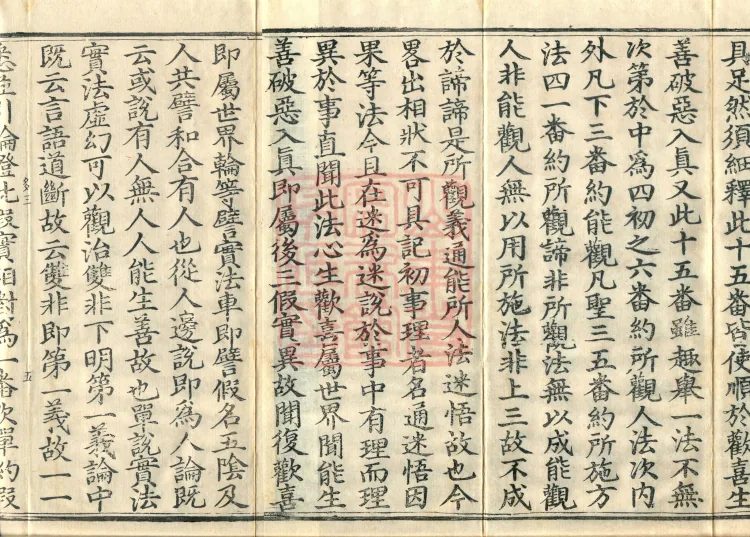 具足然須細釋此十五番皆使順於歡喜生
善破惡入眞又此十五番雖趣舉一法不無
次第於中爲四初之六番約所觀人法次內
外凡下三番約能觀凡聖三五番約所施方
法四一番約所觀諦非所觀法無以成能觀
人非能觀人無以用所施法非上三故不成
於諦諦是所觀義通能所人法迷悟故也今
畧出相狀不可具記初事理者名通迷悟因
果等法今且在迷爲迷說於事中有理而理
異於事直聞此法心生歡喜屬世界聞能生
善破惡入眞即屬後三假實異故聞復歡喜
即屬世界輪等譬實法車即譬假名五陰及
人共譬和合有人也從人邊說即爲人論既
云或說有人無人人能生善故也單說實法
實法虛幻可以觀治雙非下明第一義論中
既云言語道斷故云雙非即第一義故一一
悉並引論證比假實相對爲一番次單約假